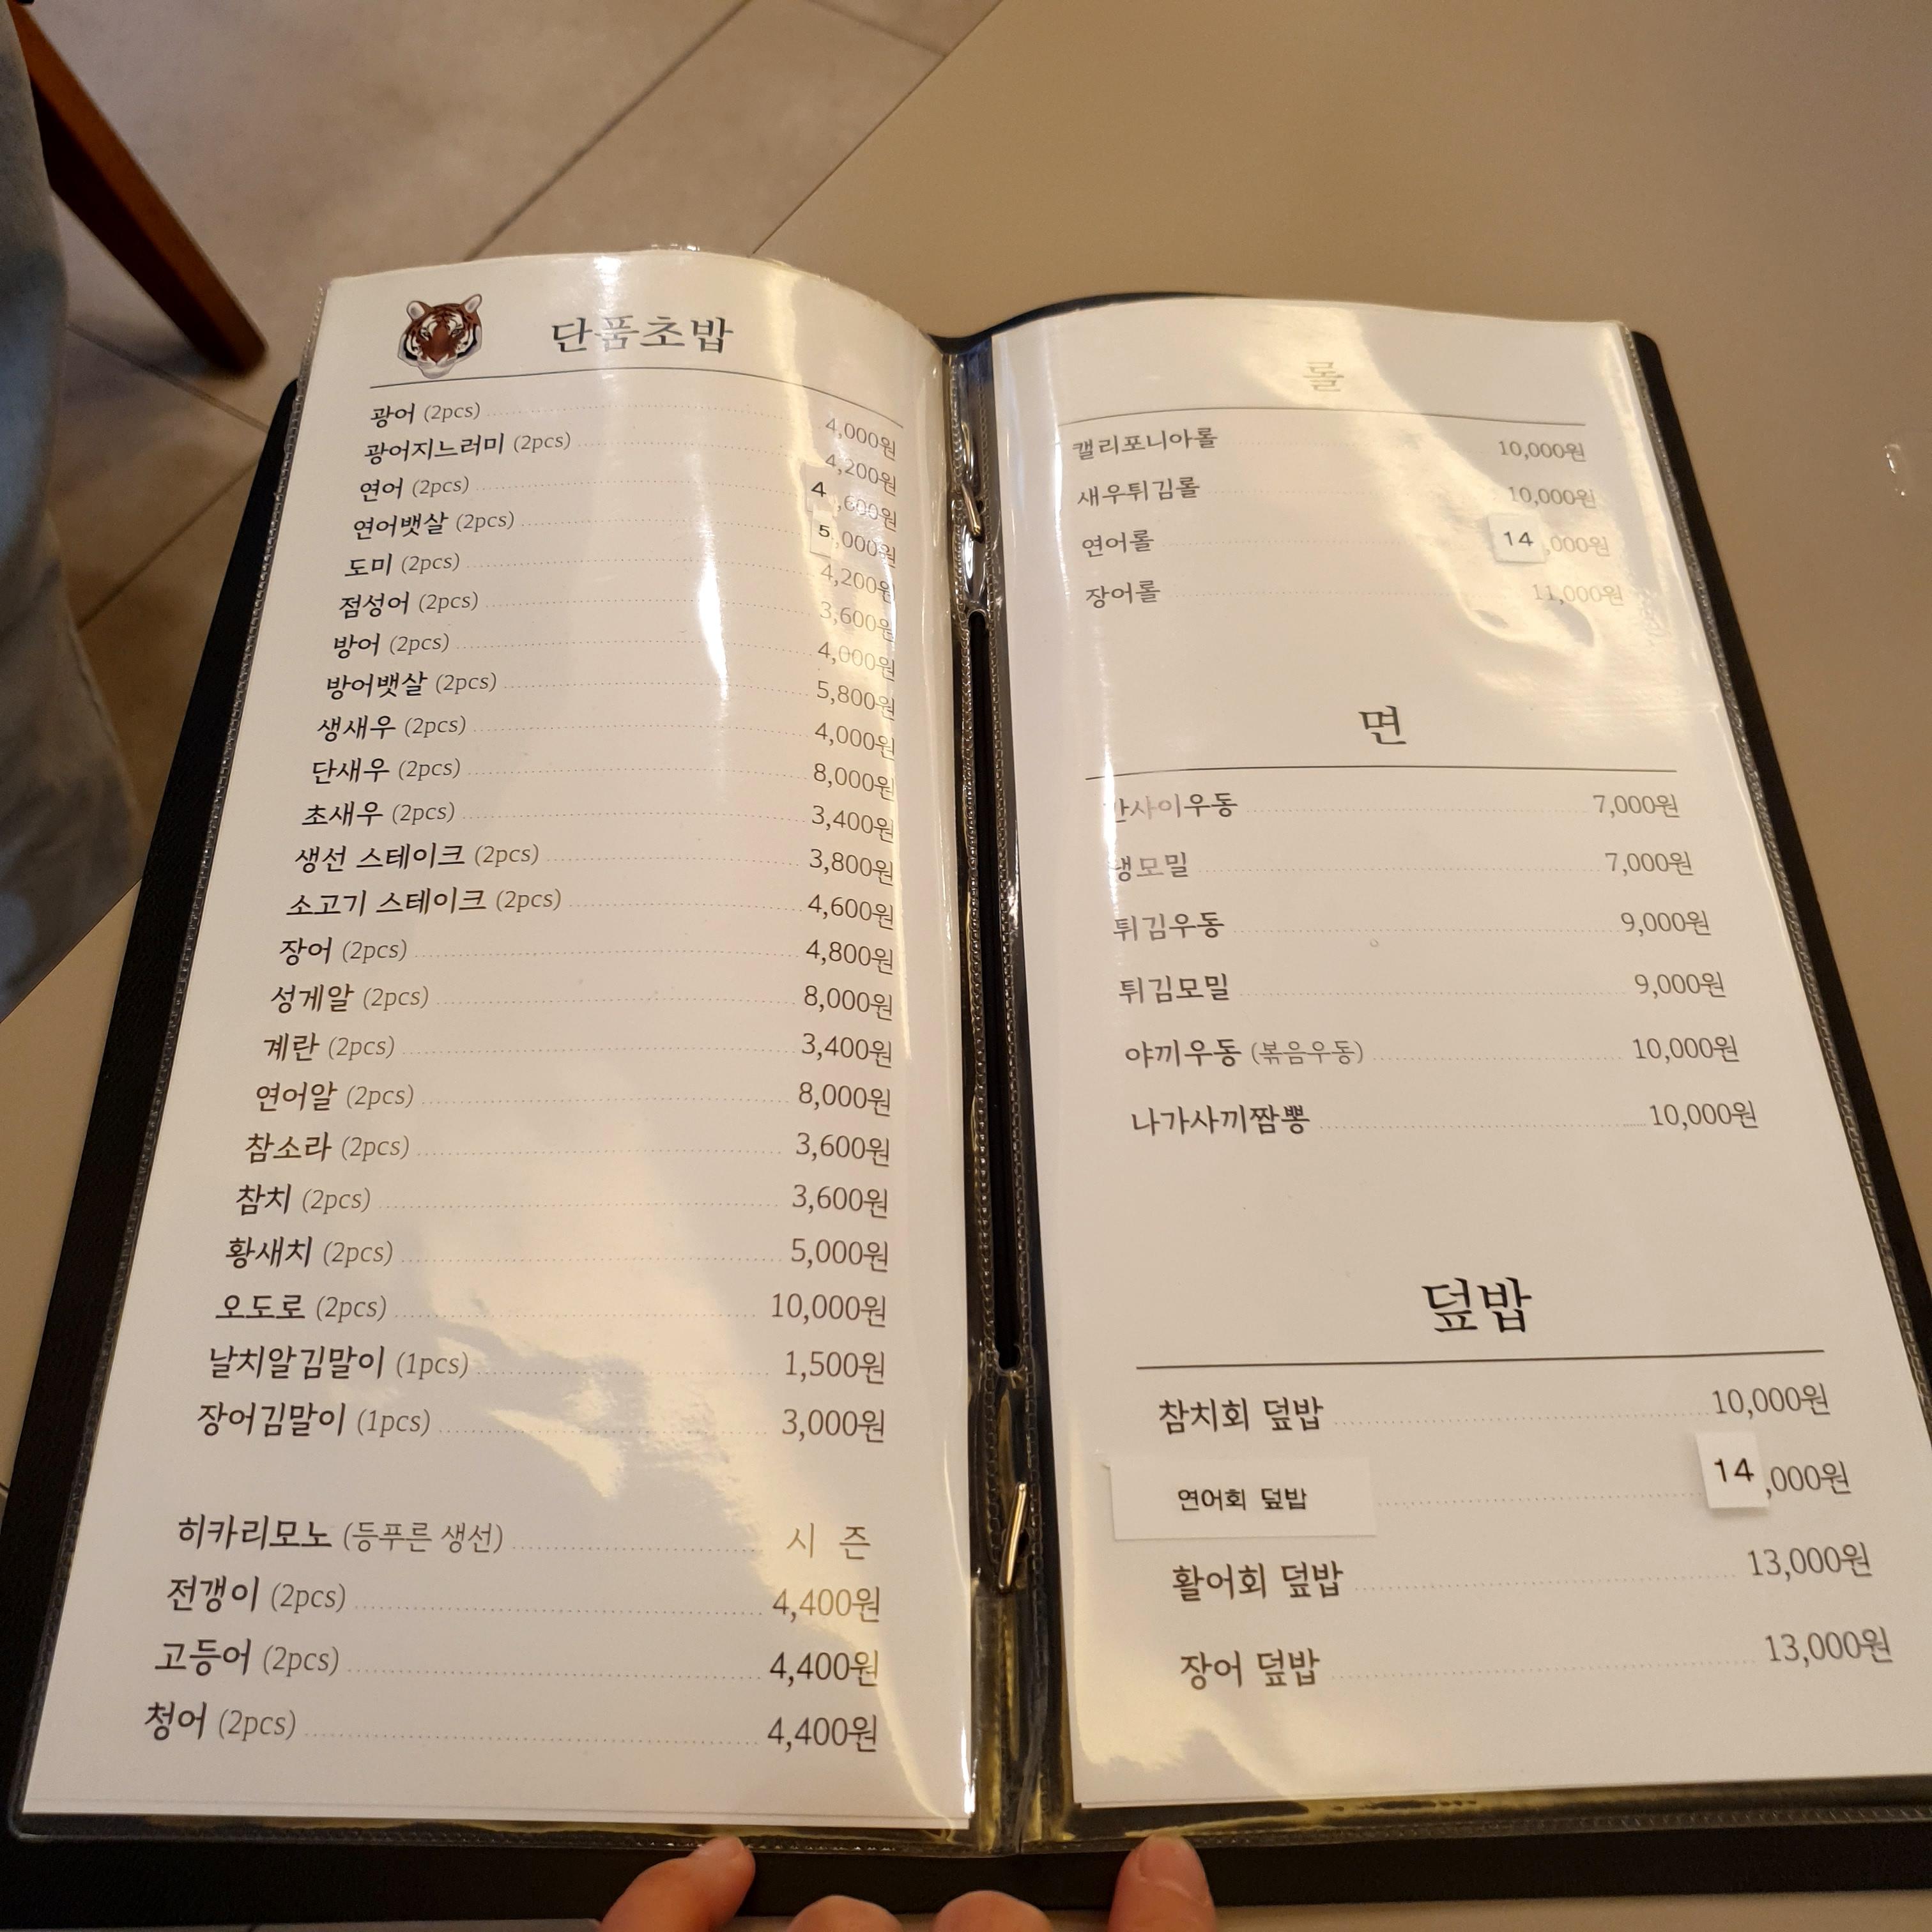 단품초밥
광어 (2pcs) 4,000원
광어지느러미 (2pcs) 4,200원
연어 (2pcs) 4,600원
연어뱃살 (2pcs) 5,000원
도미 (2pcs) 4,200원
점성어 (2pcs) 3,600원
방어 (2pcs) 4,000원
방어뱃살 (2pcs) 5,800원
생새우 (2pcs) 4,000원
단새우 (2pcs) 8,000원
초새우 (2pcs) 3,400원
생선 스테이크 (2pcs) 3,800원
소고기 스테이크 (2pcs) 4,600원
장어 (2pcs) 4,800원
성게알 (2pcs) 8,000원
계란 (2pcs) 3,400원
연어알 (2pcs) 8,000원
참소라 (2pcs) 3,600원
참치 (2pcs) 3,600원
황새치 (2pcs) 5,000원
오도로 (2pcs) 10,000원
날치알김말이 (1pcs) 1,500원
장어김말이 (1pcs) 3,000원
히카리모노 (등푸른 생선) 시 즌
전갱이 (2pcs) 4,400원
고등어 (2pcs) 4,400원
청어 (2pcs) 4,400원
롤
캘리포니아롤 10,000원
새우튀김롤 10,000원
연어롤 14,000원
장어롤 11,000원
면
7,000원
7,000원
튀김우동 9,000원
튀김모밀 9,000원
야끼우동 (볶음우동) 10,000원
나가사끼짬뽕 10,000원
덮밥
참치회 덮밥 10,000원
연어회 덮밥 14,000원
활어회 덮밥 13,000원
장어 덮밥 13,000원